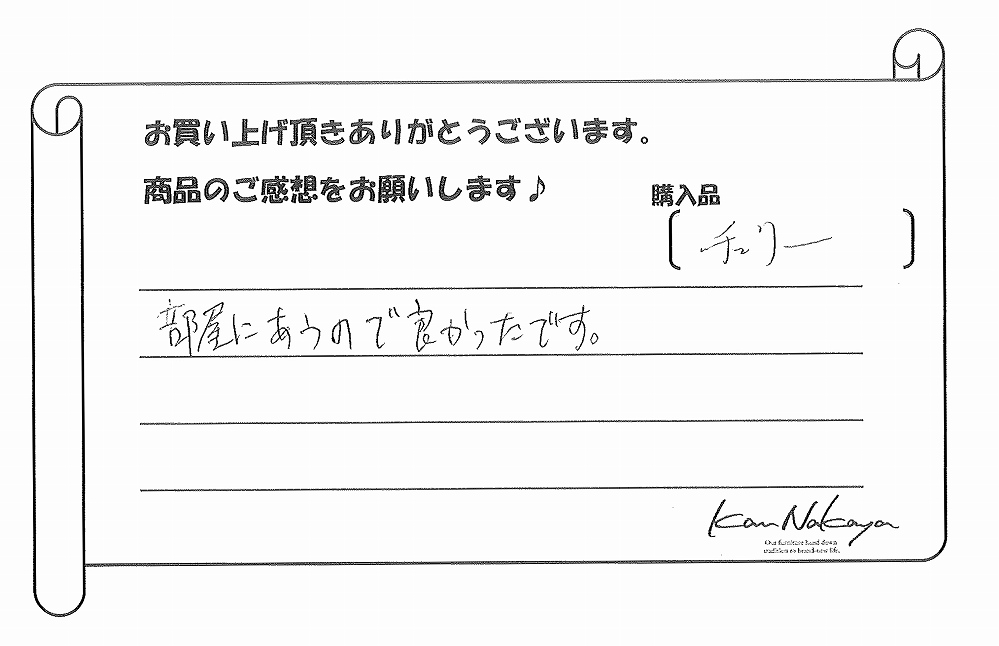 お買い上げ頂きありがとうございます。
商品のご感想をお願いします♪
購入品
チェリー
部屋にあうので良かったです。
Kan Nakaya
Our furniture hand down
tradition to brand-new life.